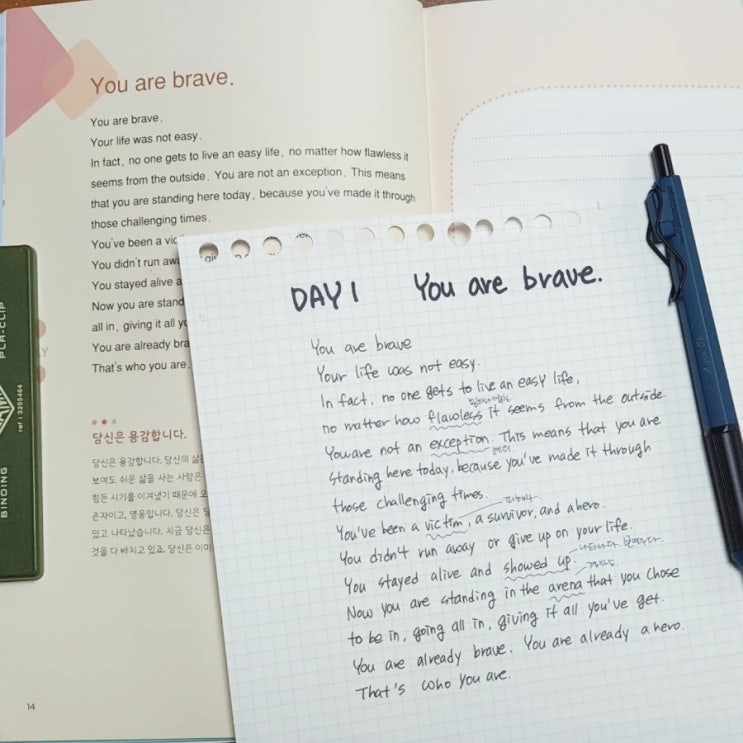 You are brave.
You are brave.
Your life was not easy.
In fact, no one gets to live an easy life, no matter how flawless it
seems from the outside. You are not an exception. This means
that you are standing here today, because you've made it through
those challenging times.
You've been a
You didn't run
You stayed alive
Now you are
all in, giving it all
You are already
That's who you are.
당신은 용감합니다.
당신은 용감합니다. 당신의
보여도 쉬운 삶을 사는 사람은
힘든 시기를 이겨냈기 때문에
존자이고, 영웅입니다. 당신은
있고 나타났습니다. 지금 당신은
것을 다 바치고 있죠. 당신은
14
PLA-CLIP
ref : 3255464
BINDING
DAY 1 You are brave.
You are brave
Your life was not easy.
In fact, no one gets to live an easy life,
no matter how flawless it seems from the outside.
You are not an exception. This means that you are
예외
standing here today, because you've made it through
those challenging times.
You've been a victim, a survivor, and a hero.
You didn't run away or give up on your life.
You stayed alive and showed up.
나타나다.
Now you are standing in the arena that you chose
to be in, going all in, giving it all you've got.
You are already brave. You are already a hero.
That's who you are.